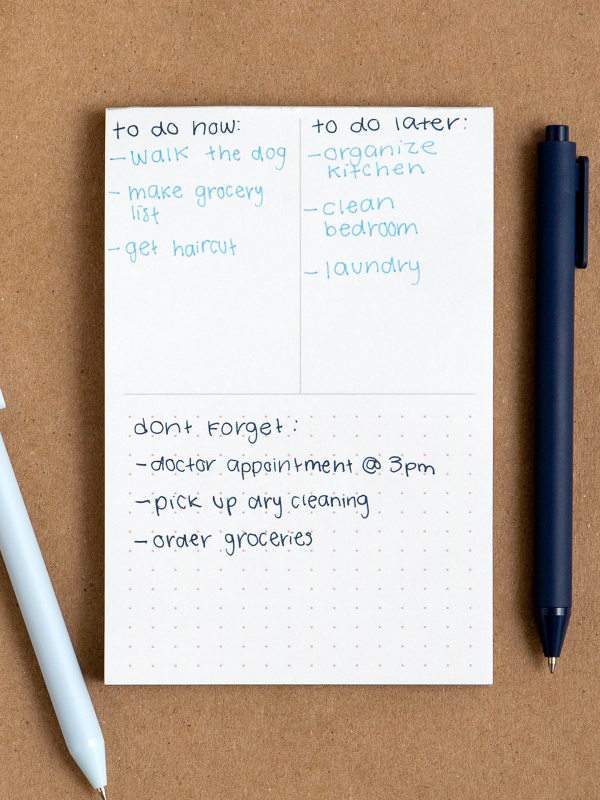 to do now:
- walk the dog
- make grocery
list
- get haircut
to do later:
- organize
kitchen
- clean
bedroom
- laundry
dont forget:
- doctor appointment @ 3pm
- pick up dry cleaning
- order groceries